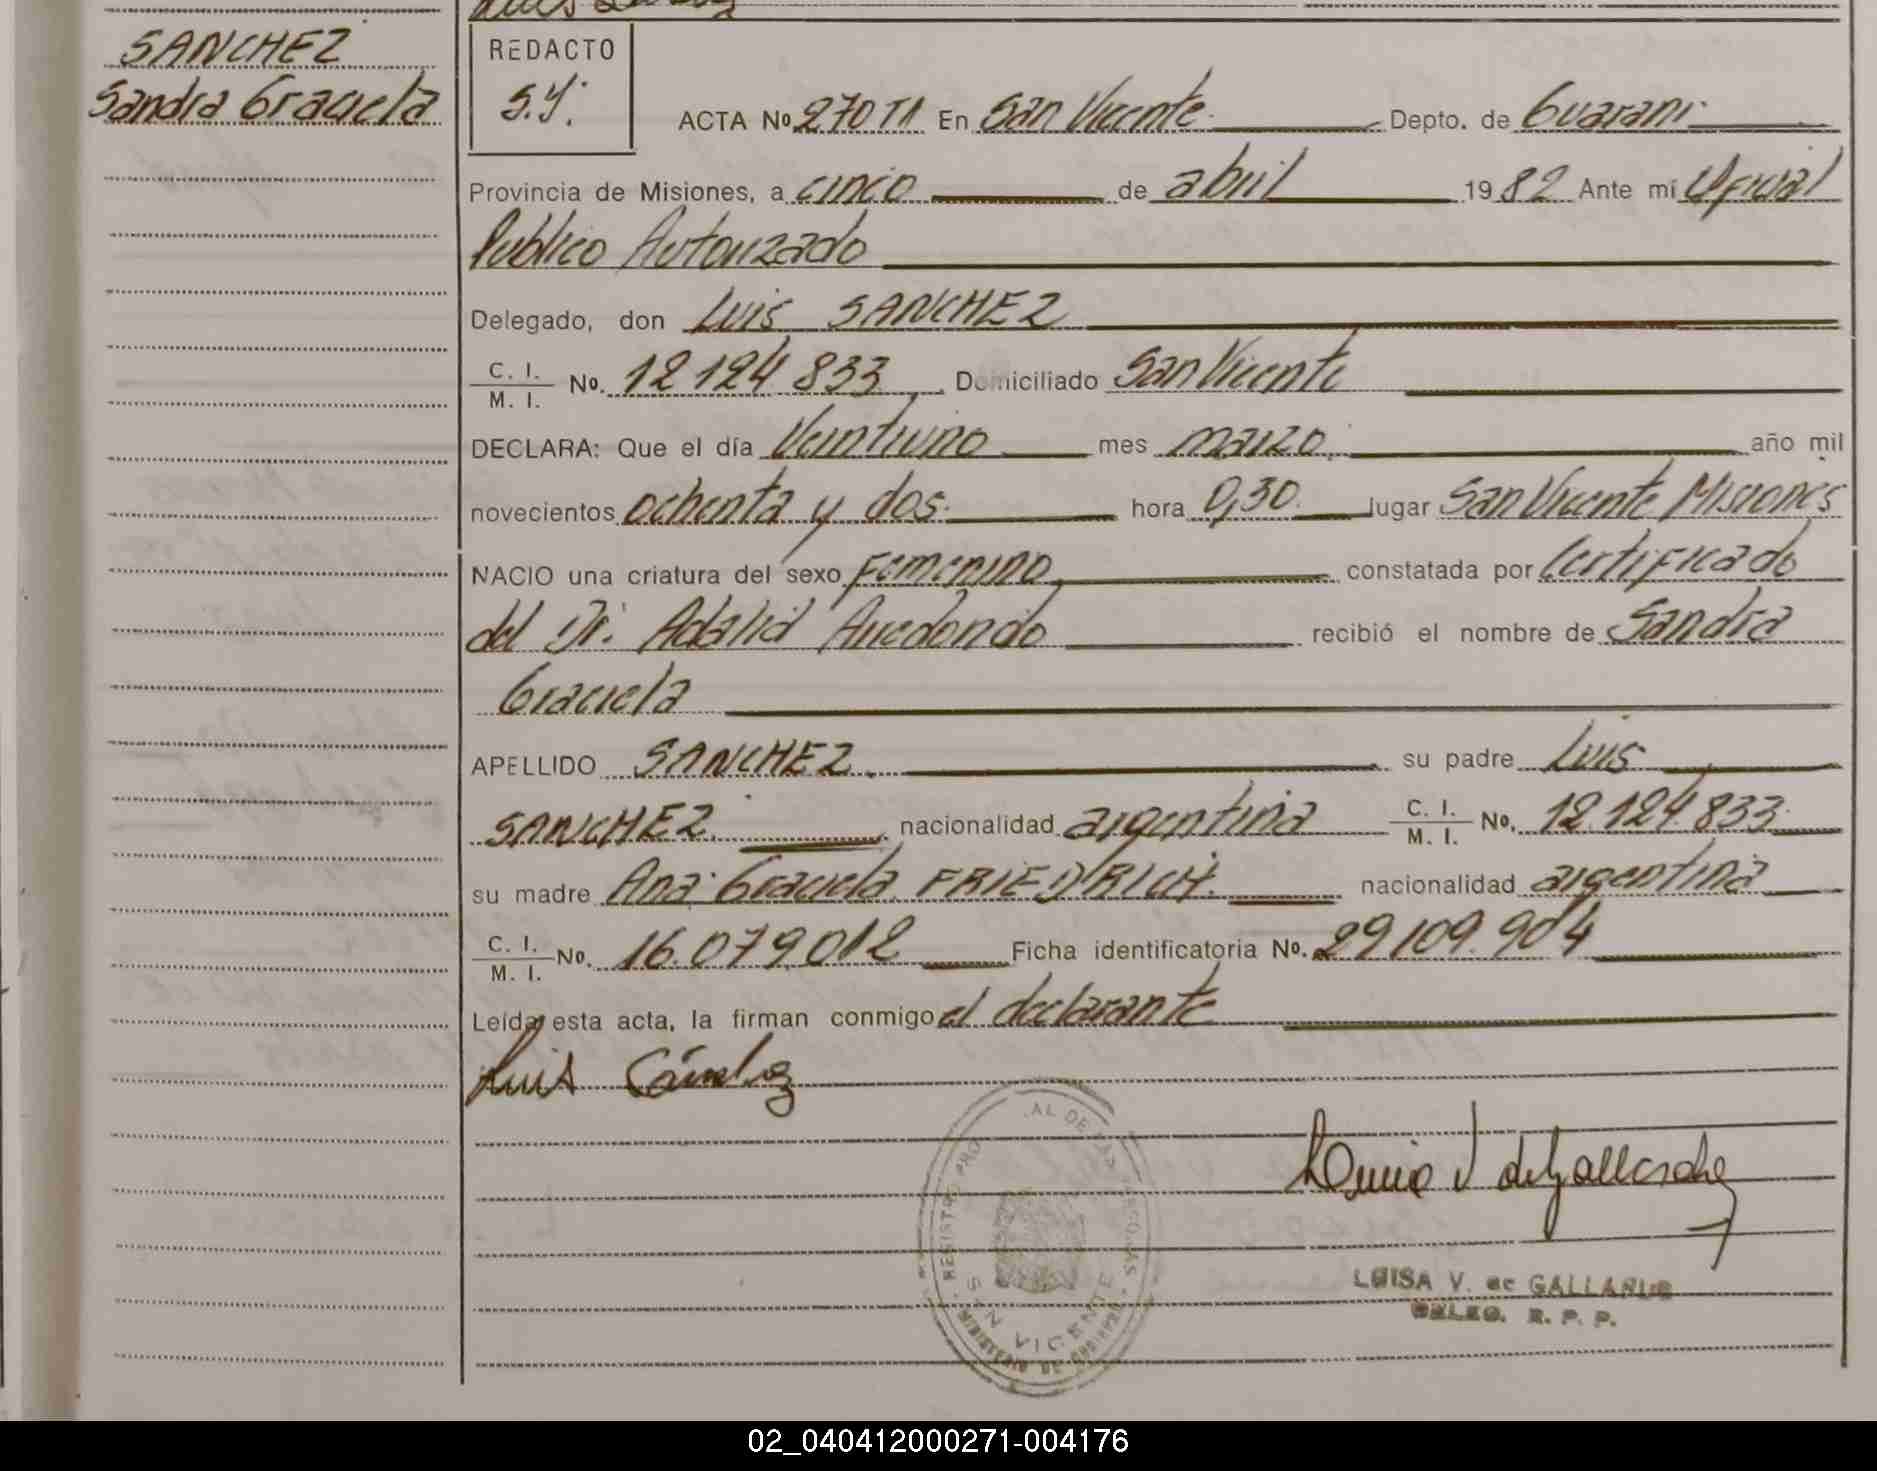 SANCHEZ
Sandra Graciela
REDACTO
S.Y.
ACTA No 270 T1 En San Vicente Depto. de Guarani
Provincia de Misiones, a cinco de abril 1982 Ante mí Oficial
Publico Autorizado
Delegado, don Luis SANCHEZ
C. I. M. I. No. 12 124 833 Domiciliado San Vicente
DECLARA: Que el día Veintiuno mes marzo año mil
novecientos ochenta y dos. hora 0,30. lugar San Vicente Misiones
NACIO una criatura del sexo Femenino constatada por Certificado
del Dr. Adalid Arredondo recibió el nombre de Sandra
Graciela
APELLIDO SANCHEZ. su padre Luis
SANCHEZ. nacionalidad argentina C. I. M. I. No. 12.124.833
su madre Ana Graciela FRIEDRICH. nacionalidad argentina
C. I. M. I. No. 16.079.012 Ficha identificatoria No. 29.109.904
Leída esta acta, la firman conmigo el declarante
Luis Sánchez
REGISTRO PRO AL DE LAS PERSONAS
SAN VICENTE
LUISA V. de GALLARDO
DELEG. R. P. P.
02_040412000271-004176